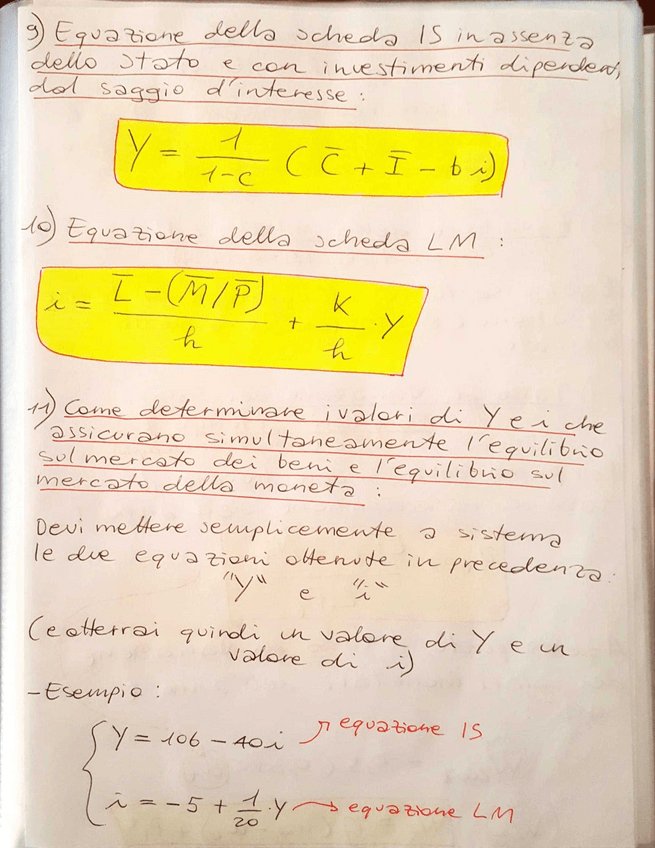 9) Equazione della scheda IS in assenza
dello stato e con investimenti dipendenti
dal saggio d'interesse :
Y = 1/(1-c) ( C̅ + I̅ - b i)
10) Equazione della scheda LM :
i = (L̅ - (M̅/P̅))/h + K/h · Y
11) Come determinare i valori di Y e i che
assicurano simultaneamente l'equilibrio
sul mercato dei beni e l'equilibrio sul
mercato della moneta :
Devi mettere semplicemente a sistema
le due equazioni ottenute in precedenza :
"Y" e "i"
(e otterrai quindi un valore di Y e un
valore di i)
- Esempio :
Y = 106 - 40i → equazione IS
i = -5 + 1/20 · Y → equazione LM